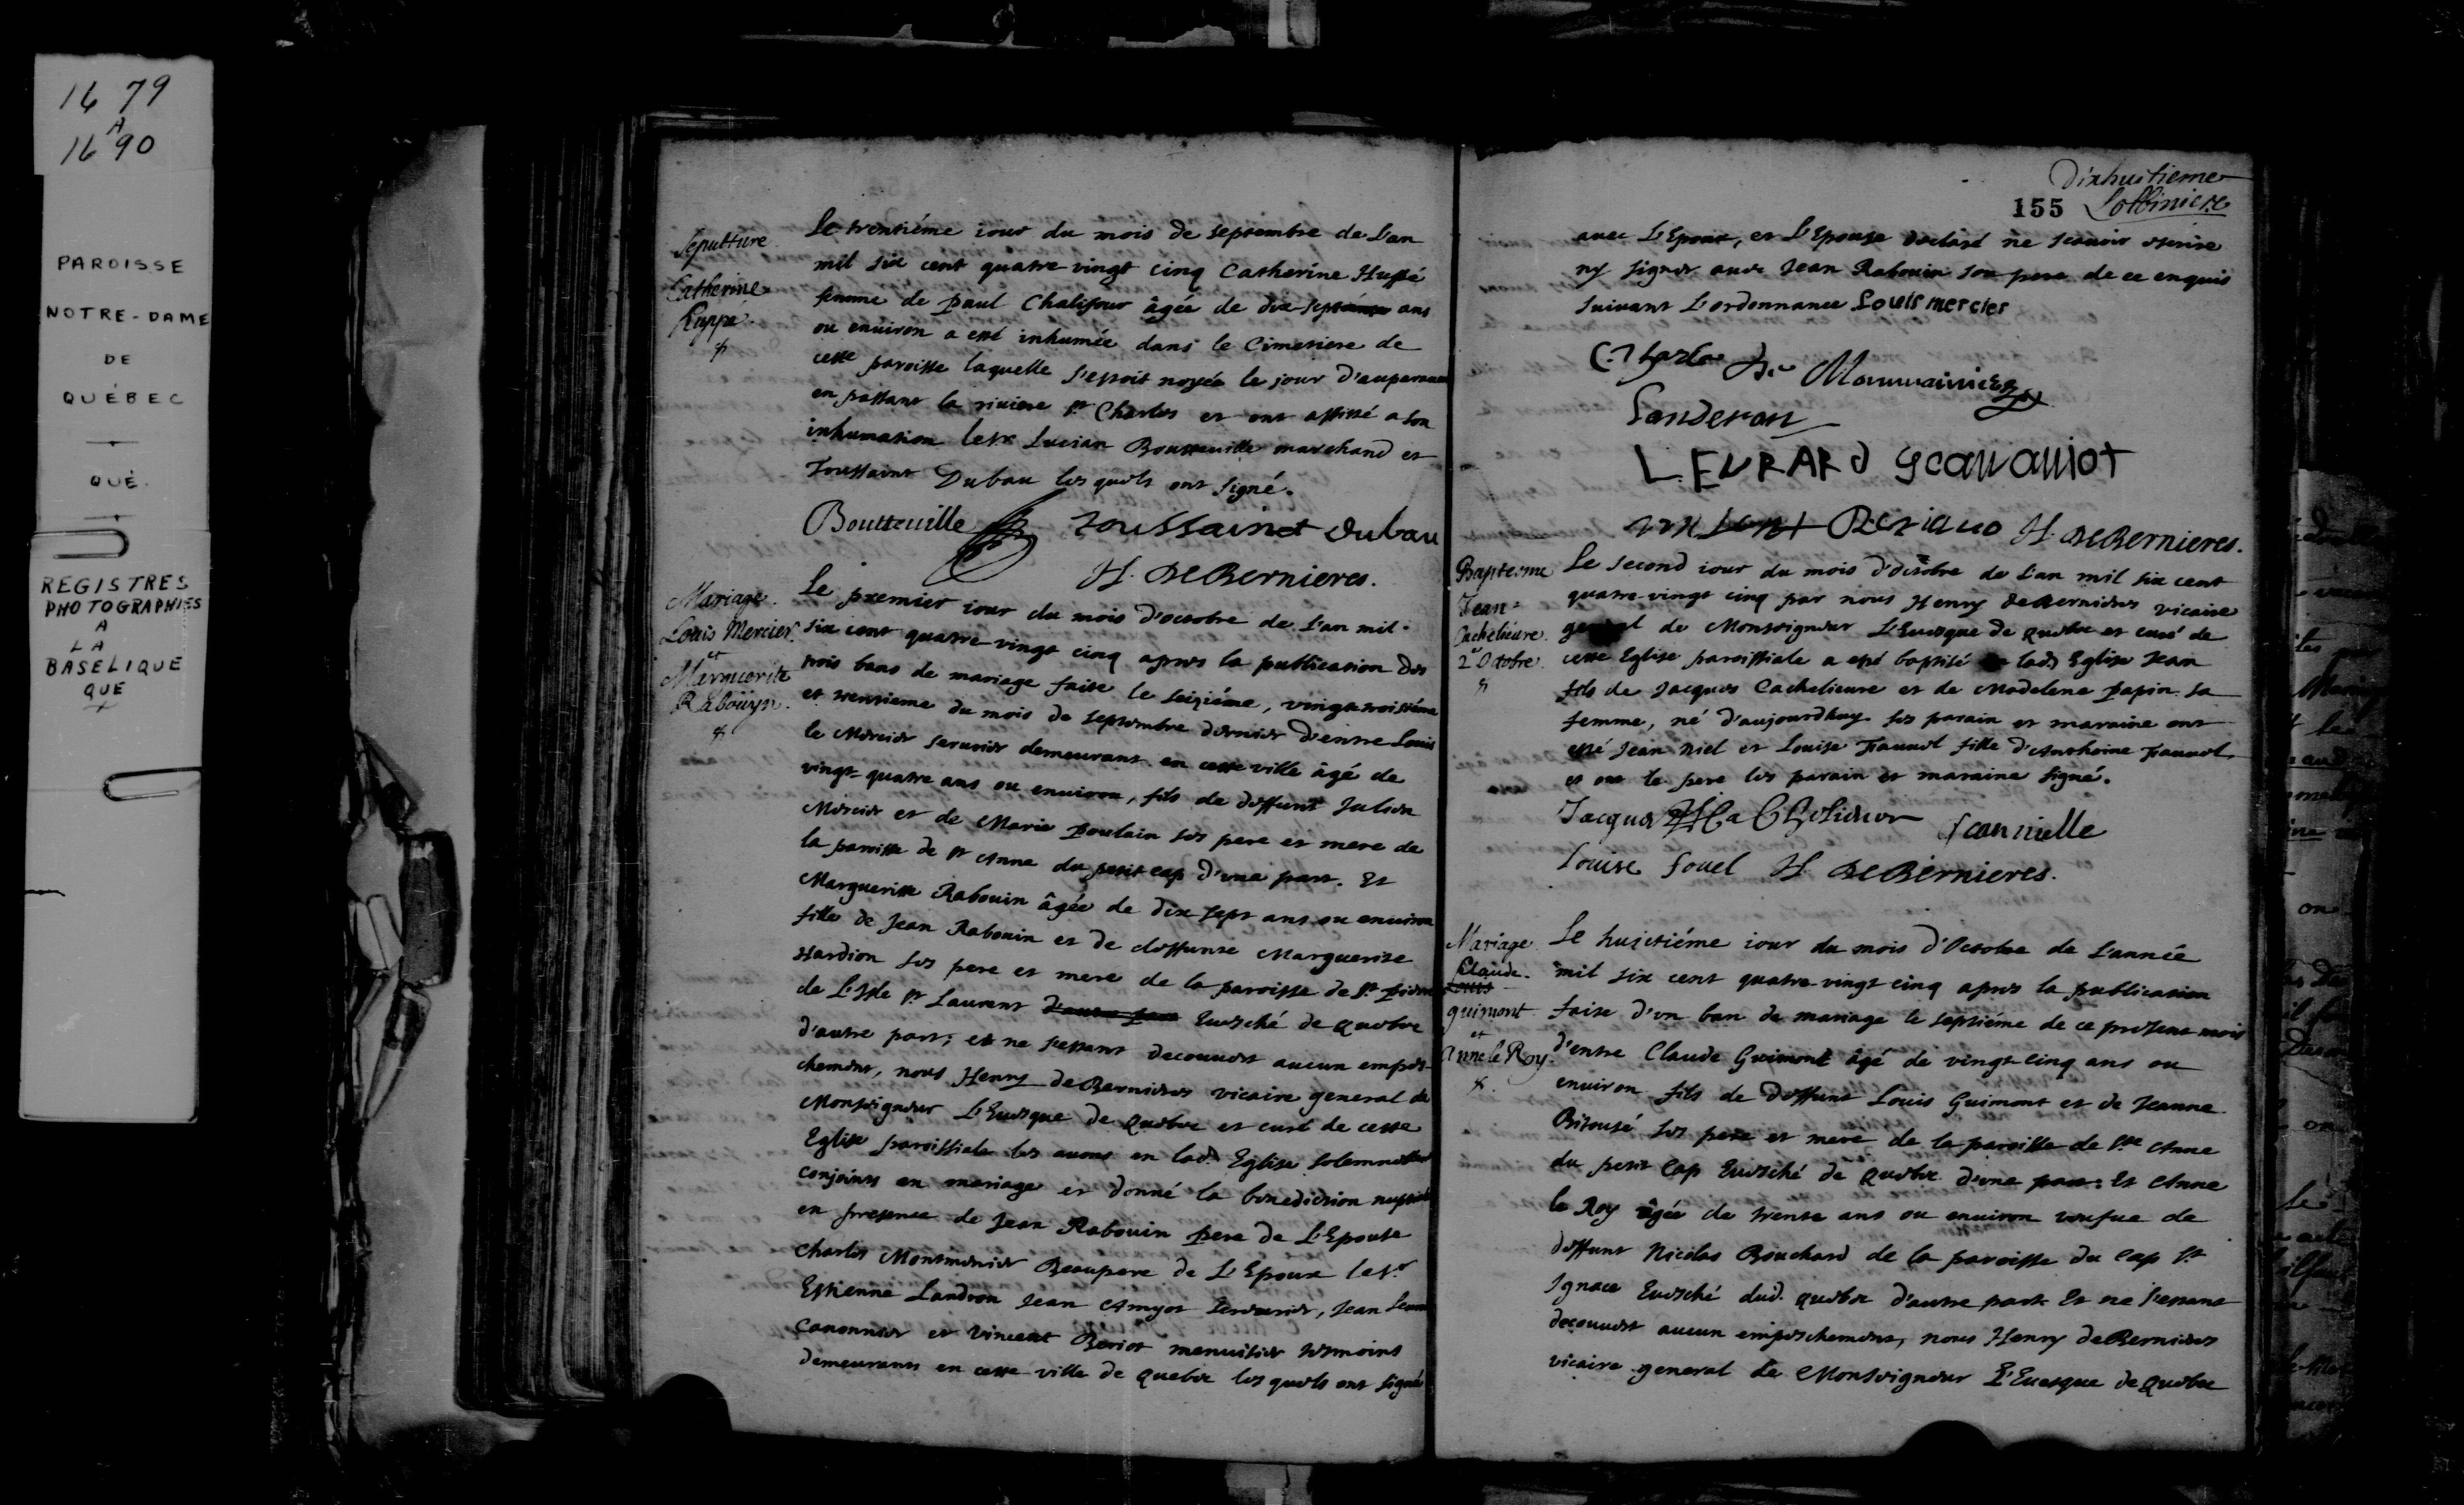 1679
A
1690
PAROISSE
NOTRE-DAME
DE
QUÉBEC
QUÉ.
REGISTRES
PHOTOGRAPHIÉS
A
LA
BASELIQUE
QUE
Sepulture
Catherine
Huppé.
Le trentiéme iour du mois de septembre de L'an
mil six cent quatre vingt cinq Catherine Huppé
femme de paul Chalifour âgée de dix sept ans
ou enuiron a esté inhumée dans le Cimetiere de
cette paroisse laquelle s'estoit noyée le jour d'auparauant
en passant la riuiere st Charles et ont assisté a son
inhumation le sr Lucian Boutteuille marchand et
Toussaint Dubau lesquels ont signé.
Boutteuille toussainct dubau
H. DeBernieres.
Mariage.
Louis Mercier
et
Marguerite
Rabouyn.
Le premier iour du mois d'octobre de L'an mil-
six cent quatre vingt cinq apres la publication des
trois bans de mariage faite le seiziéme, vingt troisiéme
et trentieme du mois de septembre dernier d'entre Louis
le Mercier serurier demeurant en cette ville âgé de
vingt-quatre ans ou enuiron, fils de deffunt Julien
Mercier et de Marie poulain ses pere et mere de
la paroisse de st Anne du petit cap d'une part. Et
Marguerite Rabouin âgée de dix sept ans ou enuiron
fille de Jean Rabouin et de deffunte Marguerite
Hardion ses pere et mere de la paroisse de st pierre
de L'Isle st Laurent d'autre part Euesché de Quebec
d'autre part; et ne s'estant decouuert aucun empes-
chement, nous Henry deBernieres vicaire general de
Monseigneur L'Euesque de Quebec et curé de cette
Eglise paroissiale les auons en lad. Eglise solemnellemt
conjoints en mariage et donné la benediction nuptiale
en presence de Jean Rabouin pere de L'Epouse
Charles Montmenier Beaupere de L'Epoux le sr
Estienne Landron Jean Amyot serrurier, Jean
canonnier et vincent Beriot menuisier temoins
demeurants en cette ville de Quebec lesquels ont signé
Dixhuitieme
155 Lotbiniere
auec L'Epoux, et L'Epouse declaré ne scauoir escrire
ny signer auec Jean Rabouin son pere de ce enquis
suiuant L'ordonnance Louis mercier
Charle
Landeron
LEVRARd Jean amiot
H. DeBernieres.
Baptesme
Jean
Cachelieure.
2e Octobre.
Le second iour du mois d'Octobre de L'an mil six cent
quatre-vingt cinq par nous Henry deBernieres vicaire
general de Monseigneur L'Euesque de Quebec et curé de
cette Eglise paroissiale a esté baptisé en lad. Eglise Jean
fils de Jacques Cachelieure et de Madelene papin sa
femme, né d'aujourdhuy ses parain et maraine ont
esté Jean niel et Louise fille d'Anthoine
et ont le pere les parain et maraine signé.
Jacques
Jean nielle
Louise H. DeBernieres.
Mariage
Claude
Louis
guimont
et
anne le Roy.
Le huictiéme iour du mois d'Octobre de L'année
mil six cent quatre-vingt cinq apres la publication
faite d'vn ban de mariage le septiéme de ce present mois
d'entre Claude Guimont âgé de vingt cinq ans ou
enuiron fils de deffunt Louis Guimont et de Jeanne
Bitousé ses pere et mere de la paroisse de Ste Anne
du petit Cap Euesché de Quebec d'une part: Et Anne
le Roy âgée de trente ans ou enuiron veufue de
deffunt Nicolas Bouchard de la paroisse du Cap St
Ignace Euesché dud. quebec d'autre part Et ne s'estant
decouuert aucun empeschement, nous Henry deBernieres
vicaire general de Monseigneur L'Euesque de Quebec